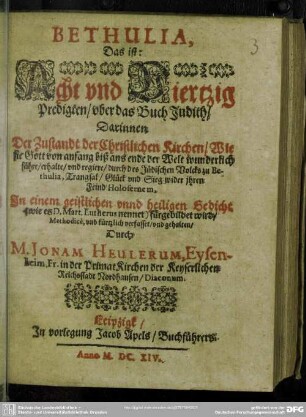 3
BETHULIA,
Das ist:
Acht vnd Viertzig
Predigten/ vber das Buch Judith/
Darinnen
Der Zustandt der Christlichen Kirchen/ Wie
sie Gott von anfang biß ans ende der Welt wunderlich
führe/ erhalte/ vnd regiere/ durch des Jüdischen Volcks zu Be-
thulia, Trangsal/ Glück vnd Sieg wider jhren
Feind Holofernem.
In einem geistlichen vnnd heiligen Gedicht
(wie es D. Mart. Lutherus nennet) fürgebildet wird/
Methodicè, vnd kürtzlich verfasset/ vnd gehalten/
Durch
M. JONAM HEULERUM, Eysen-
heim. Fr. in der Primat Kirchen der Keyserlichen
Reichsstadt Nordhausen/ Diaconum.
Leipzigk/
In vorlegung Jacob Apels/ Buchführers.
Anno M. DC. XIV.